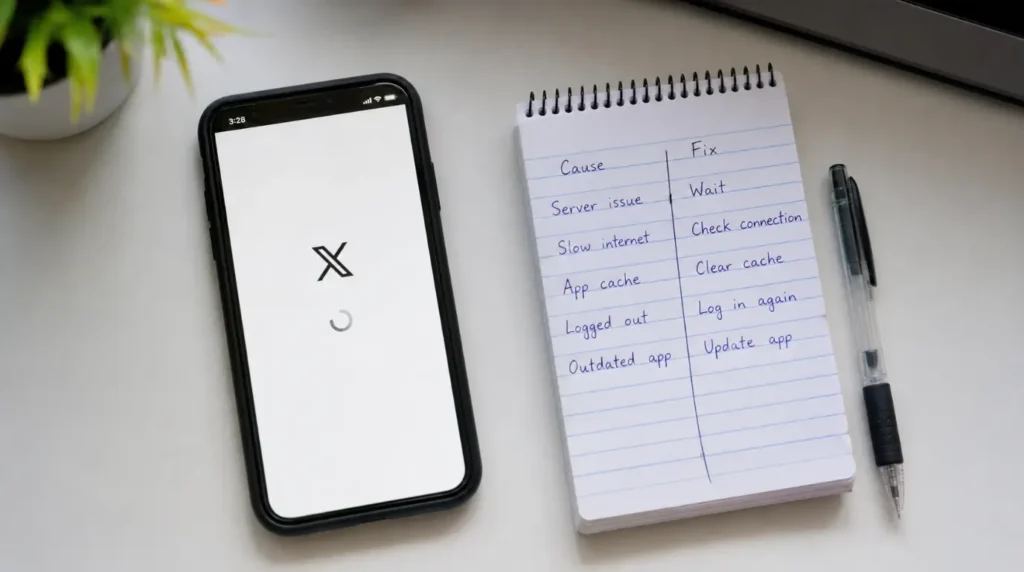 3:28
X
Cause Fix
Server issue Wait
Slow internet Check connection
App cache Clear cache
Logged out Log in again
Outdated app Update app